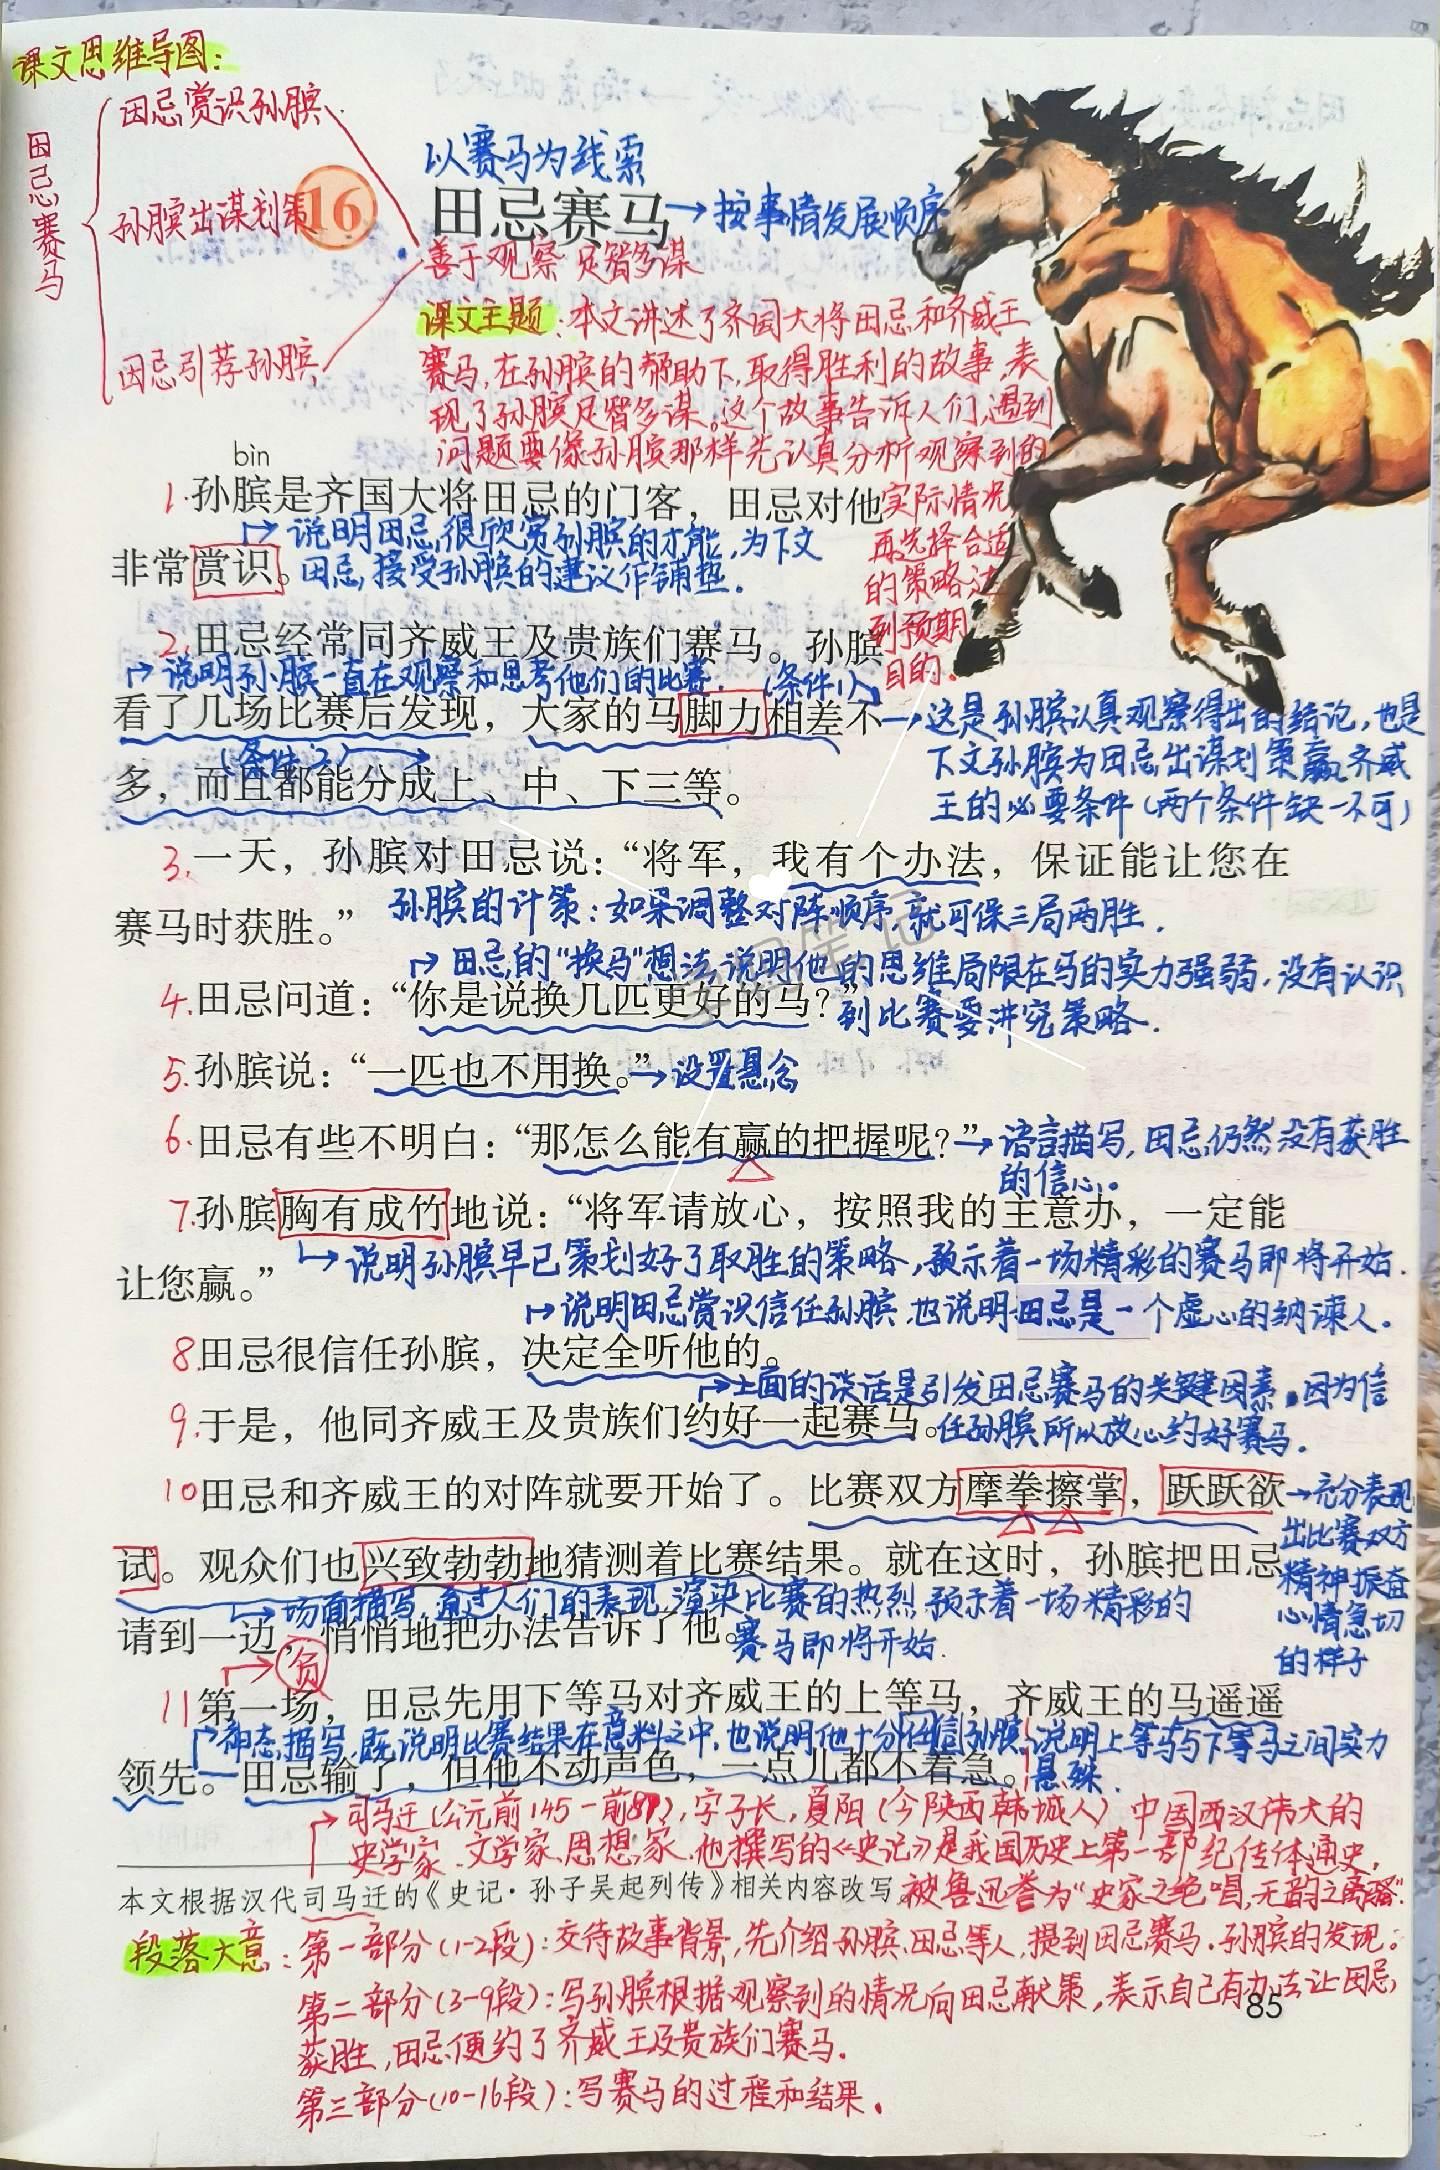 课文思维导图：
田忌赛马
田忌赏识孙膑
孙膑出谋划策
田忌引荐孙膑
善于观察 足智多谋
以赛马为线索
16
田忌赛马→按事情发展顺序
课文主题：本文讲述了齐国大将田忌和齐威王
赛马，在孙膑的帮助下，取得胜利的故事，表
现了孙膑足智多谋。这个故事告诉人们，遇到
问题要像孙膑那样先认真分析观察到的
实际情况，
再选择合适
的策略达
到预期
目的。
bìn
1.孙膑是齐国大将田忌的门客，田忌对他
说明田忌很欣赏孙膑的才能，为下文
非常赏识。田忌接受孙膑的建议作铺垫.
2.田忌经常同齐威王及贵族们赛马。孙膑
说明孙膑一直在观察和思考他们的比赛. (条件1)
看了几场比赛后发现，大家的马脚力相差不
(条件2)
多，而且都能分成上、中、下三等。
→这是孙膑认真观察得出的结论，也是
下文孙膑为田忌出谋划策赢齐威
王的必要条件(两个条件缺一不可)
3.一天，孙膑对田忌说：“将军，我有个办法，保证能让您在
赛马时获胜。” 孙膑的计策：如果调整对阵顺序，就可保三局两胜.
田忌的“换马”想法说明他的思维局限在马的实力强弱，没有认识
4.田忌问道：“你是说换几匹更好的马？”到比赛要讲究策略.
5.孙膑说：“一匹也不用换。”→设置悬念
6.田忌有些不明白：“那怎么能有赢的把握呢？”→语言描写，田忌仍然没有获胜
的信心。
7.孙膑胸有成竹地说：“将军请放心，按照我的主意办，一定能
说明孙膑早已策划好了取胜的策略，预示着一场精彩的赛马即将开始.
让您赢。”
说明田忌赏识信任孙膑，也说明田忌是一个虚心的纳谏人。
8.田忌很信任孙膑，决定全听他的。
上面的谈话是引发田忌赛马的关键因素。因为信
9.于是，他同齐威王及贵族们约好一起赛马。任孙膑所以放心约好赛马.
10田忌和齐威王的对阵就要开始了。比赛双方摩拳擦掌，跃跃欲
试。观众们也兴致勃勃地猜测着比赛结果。就在这时，孙膑把田忌
场面描写，通过人们的表现，渲染比赛的热烈，预示着一场精彩的
请到一边，悄悄地把办法告诉了他。赛马即将开始.
→充分表现
出比赛双方
精神振奋
心情急切
的样子
负
11第一场，田忌先用下等马对齐威王的上等马，齐威王的马遥遥
神态描写，既说明比赛结果在意料之中，也说明他十分信任孙膑
说明上等马与下等马之间实力
悬殊.
领先。田忌输了，但他不动声色，一点儿都不着急。
司马迁(公元前145-前87)，字子长，夏阳(今陕西韩城人)中国西汉伟大的
史学家、文学家、思想家.他撰写的《史记》是我国历史上第一部纪传体通史，
本文根据汉代司马迁的《史记·孙子吴起列传》相关内容改写。被鲁迅誉为“史家之绝唱，无韵之离骚”.
段落大意：第一部分(1-2段)：交待故事背景，先介绍孙膑、田忌等人，提到田忌赛马.孙膑的发现。
第二部分(3-9段)：写孙膑根据观察到的情况向田忌献策，表示自己有办法让田忌
85
获胜，田忌便约了齐威王及贵族们赛马.
第三部分(10-16段)：写赛马的过程和结果.